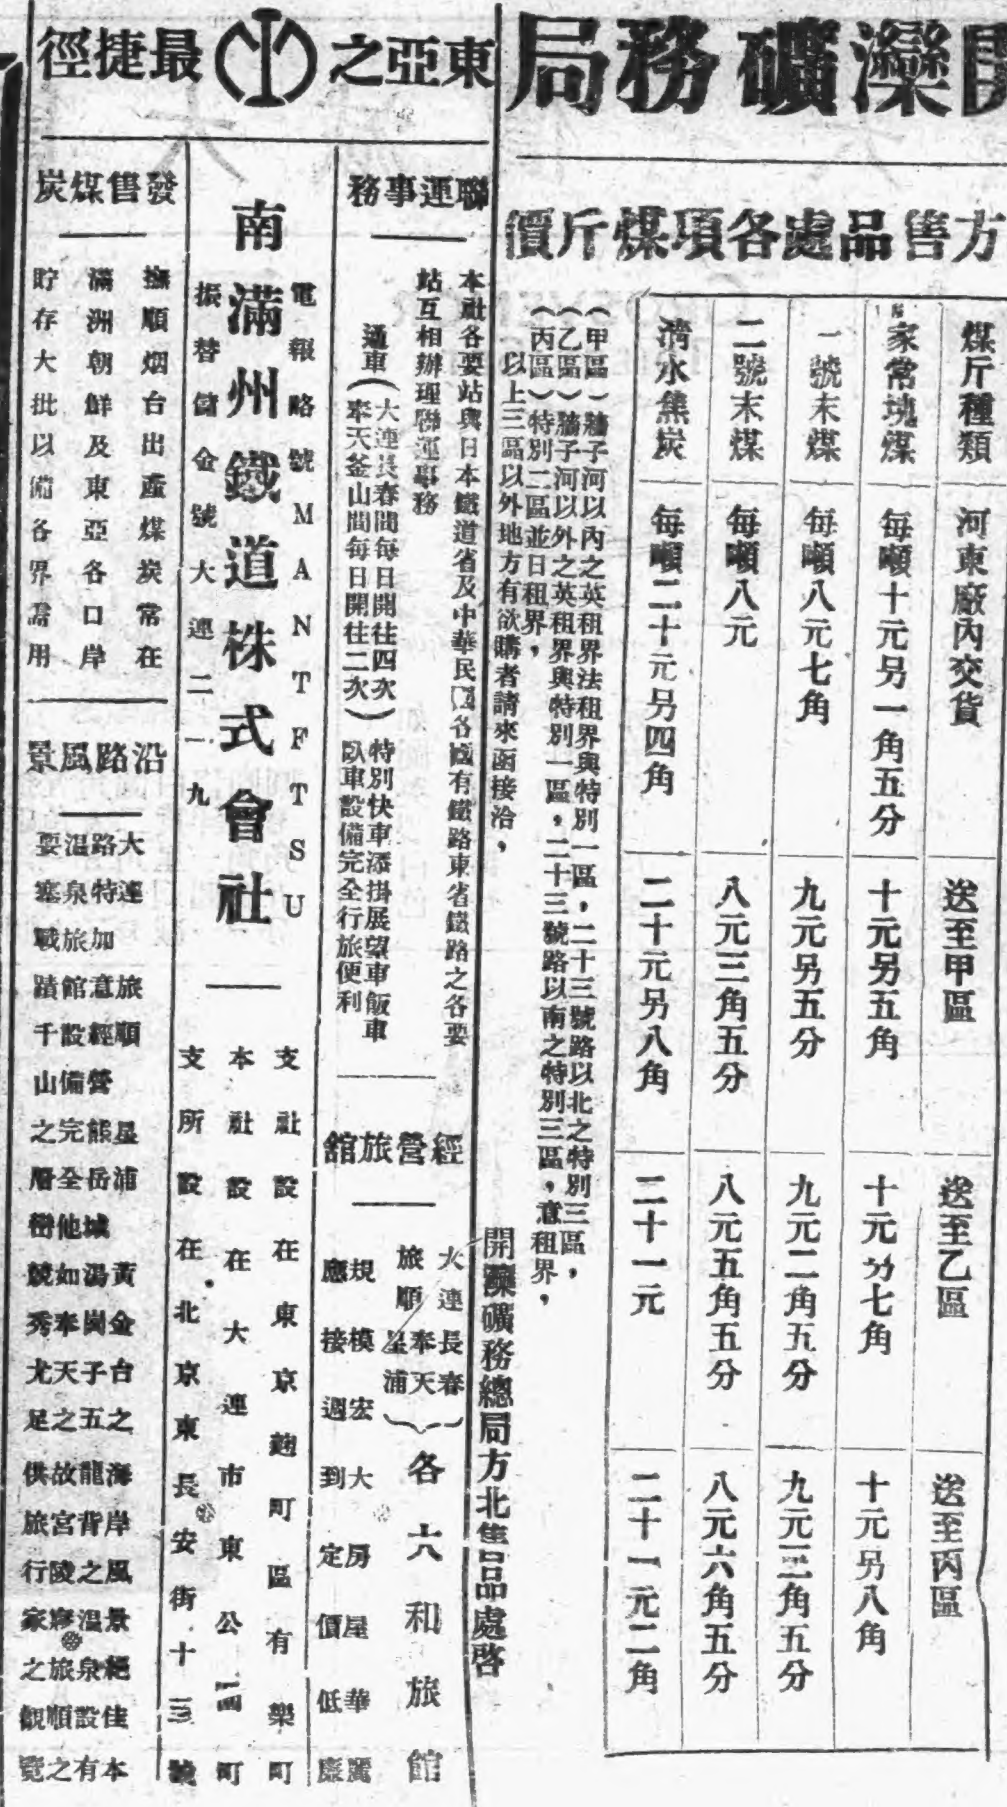 灤礦務局
方售品處各項煤斤價
煤斤種類 河東廠內交貨 送至甲區 送至乙區 送至丙區
家常塊煤 每噸十元另一角五分 十元另五角 十元另七角 十元另八角
一號末煤 每噸八元七角 九元另五分 九元二角五分 九元三角五分
二號末煤 每噸八元 八元三角五分 八元五角五分 八元六角五分
清水焦炭 每噸二十元另四角 二十元另八角 二十一元 二十一元二角
(甲區)牆子河以內之英租界法租界與特別一區,二十三號路以北之特別三區,
(乙區)牆子河以外之英租界與特別一區,二十三號路以南之特別三區,意租界,
(丙區)特別二區並日租界,
以上三區以外地方有欲購者請來函接洽,
開灤礦務總局方北售品處啓
東亞之最捷徑
聯運事務
本社各要站與日本鐵道省及中華民國各國有鐵路東省鐵路之各要
站互相辦理聯運事務
通車(大連長春間每日開往四次 奉天釜山間每日開往二次)特別快車添掛展望車飯車
臥車設備完全行旅便利
經營旅館
大連長春
旅順奉天
星浦
各大和旅館
規模宏大房屋華麗
應接週到定價低廉
電報略號MANTFTSU
南滿州鐵道株式會社
振替儲金號大連二一九
支社設在東京麴町區有樂町
本社設在大連市東公園町
支所設在北京東長安街十三號
發售煤炭
撫順烟台出產煤炭常在
滿洲朝鮮及東亞各口岸
貯存大批以備各界需用
沿路風景
大連 旅順 星浦 黃金台之海岸風景絕佳本
路特加意經營熊岳城湯崗子五龍背之溫泉設有
溫泉旅館設備完全他如奉天之故宮陵寢旅順之
要塞戰蹟千山之層巒競秀尤足供旅行家之觀覽